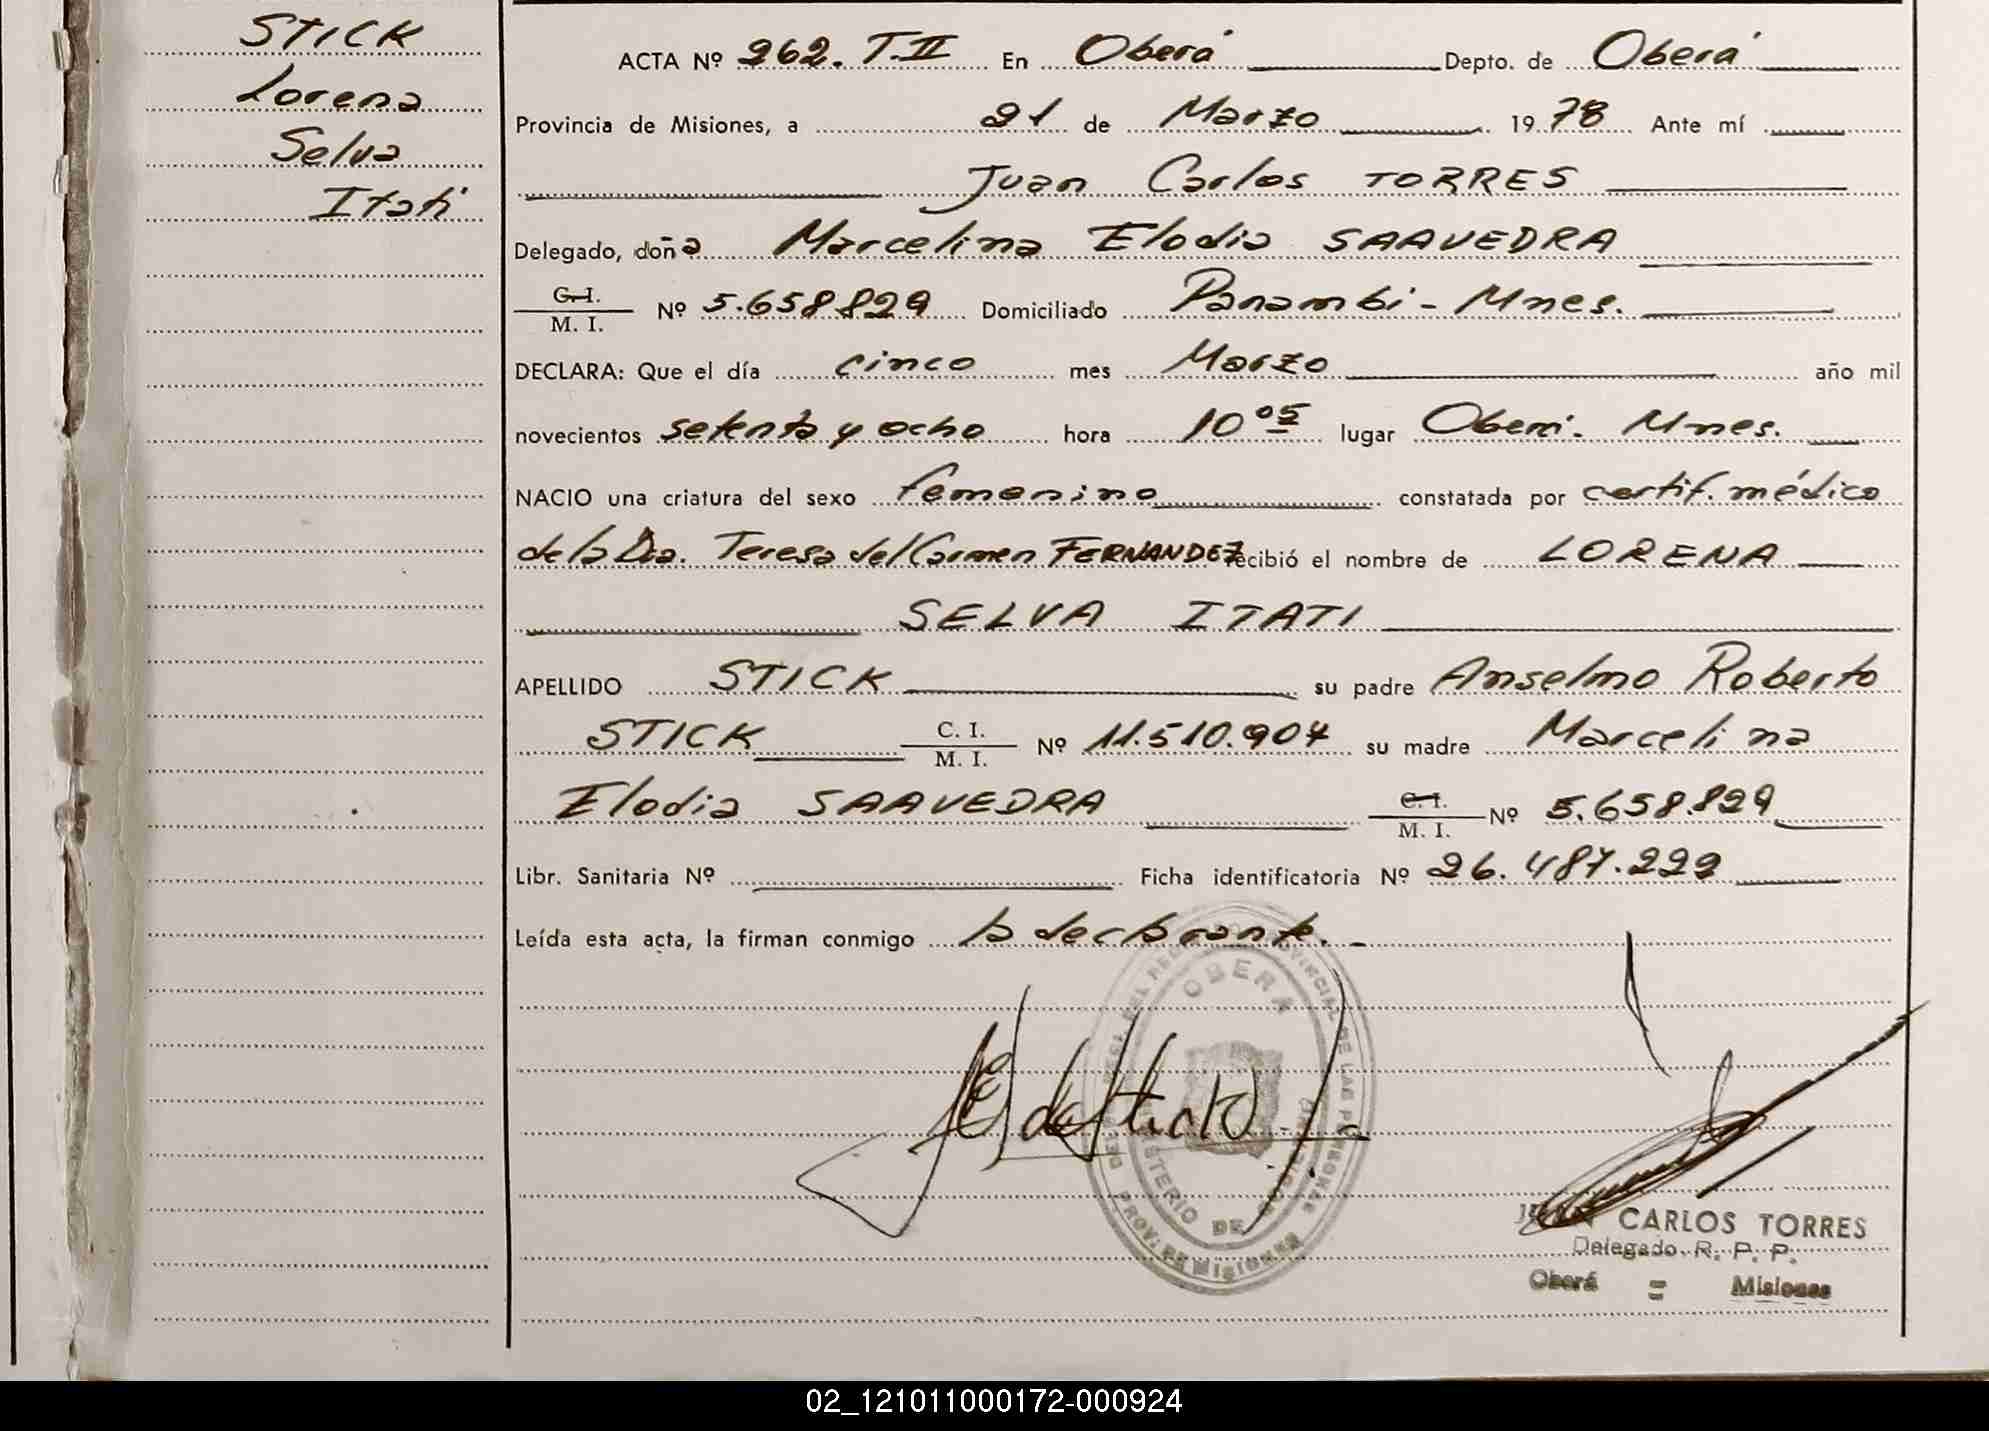 STICK
Lorena
Selva
Itati
ACTA Nº 262. T.II En Oberá Depto. de Oberá
Provincia de Misiones, a 21 de Marzo 1978 Ante mí
Juan Carlos TORRES
Delegado, doña Marcelina Elodia SAAVEDRA
C. I.
M. I. Nº 5.658.829 Domiciliado Panambi - Mnes.
DECLARA: Que el día cinco mes Marzo año mil
novecientos setenta y ocho hora 10 05 lugar Oberá. Mnes.
NACIO una criatura del sexo femenino constatada por certif. médico
de la Dra. Teresa del Carmen FERNANDEZ recibió el nombre de LORENA
SELVA ITATI
APELLIDO STICK su padre Anselmo Roberto
STICK C. I.
M. I. Nº 11.510.904 su madre Marcelina
Elodia SAAVEDRA C. I.
M. I. Nº 5.658.829
Libr. Sanitaria Nº Ficha identificatoria Nº 26.487.222
Leída esta acta, la firman conmigo la declarante.
OBERA
PROVINCIAL DE LAS PERSONAS
PROV. DE MISIONES
JUAN CARLOS TORRES
Delegado R. P. P.
Oberá = Misiones
02_121011000172-000924